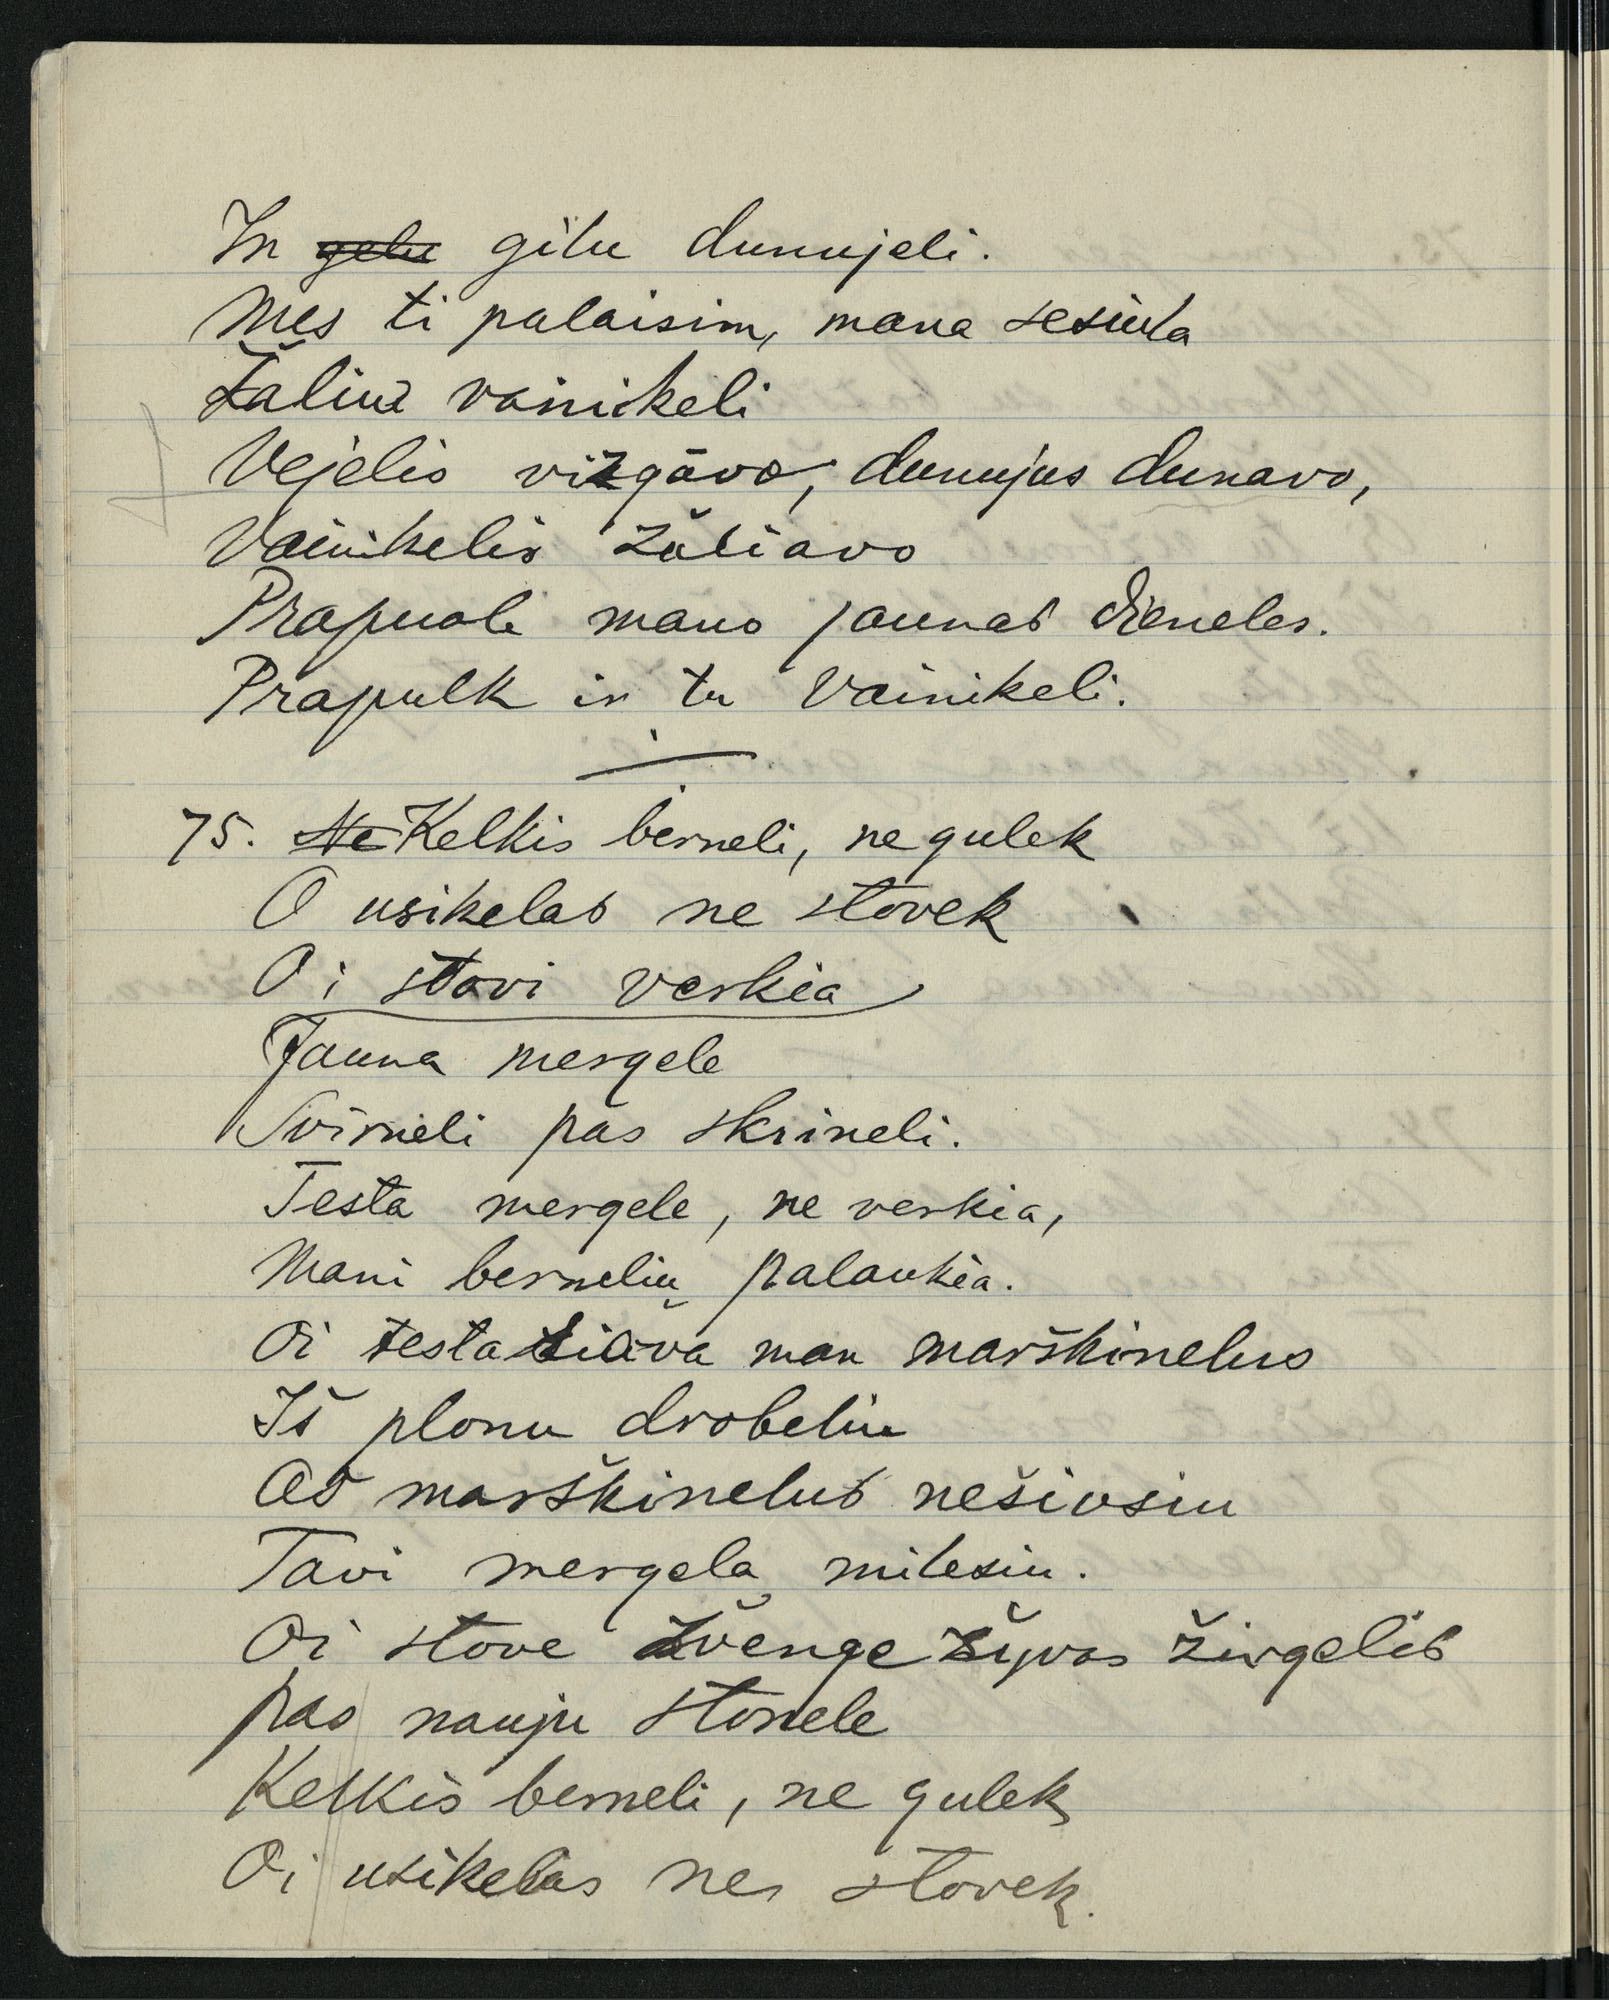 In gelu gilu dunujeli.
Mes ti palaisim, mana sesiula
Žaliuą vainikeli
Vejelis vizgavo, dunujus dunavo,
Vainikelis žaliavo
Prapuole mano jaunas dieneles.
Prapulk ir tu vainikeli.
75. Ne Kelkis berneli, ne gulek
O usikelas ne stovek
Oi stovi verkia
Jauna mergele
Svirneli pas skrineli.
Testa mergele, ne verkia,
Mani bernelių palaukia.
Oi testa siuva man marškinelus
Iš plonu drobeliu
Aš marškinelus nešiosiu
Tavi mergelą milesiu.
Oi stove žvenge žyvas žirgelis
pas nauju stonele
Kelkis berneli, ne gulek
Oi usikelas ne stovek.